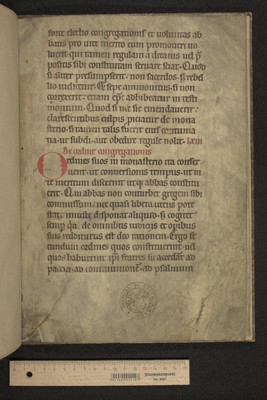 forte electio congregationis et voluntas ab
batis pro vite merito eum promovere vo
luerit. qui tamen regulam a decanis vel p̄
positis sibi constitutam servare sciat. Quod
si aliter presumpserit. non sacerdos. sed rebel
lio iudicetur. Et sepe ammonitus si non
correxerit. etiam ep̄c adhibeatur in testi
monium. Quod si nec sic emendaverit.
clarescentibus culpis. proiciatur de mona
sterio. si tamen talis fuerit eius contuma
cia. ut subdi. aut obedire regule nolit.
De ordine congregationis
Ordines suos in monasterio ita conser
vent. ut conversionis tempus. ut vi
te meritum discernit. utqꝫ abbas constitu
erit. Qui abbas non conturbet gregem sibi
commissum. nec quasi libera utens pote
state. iniuste disponat aliquid. sed cogitet
semp̄ quia de omnibus iudiciis et operibus
suis redditurus est deo rationem. Ergo se
cundum ordines quos constituerit. vel
quos habuerint ipsi fratres. sic accedant ad
pacem. ad communionem. ad psalmum